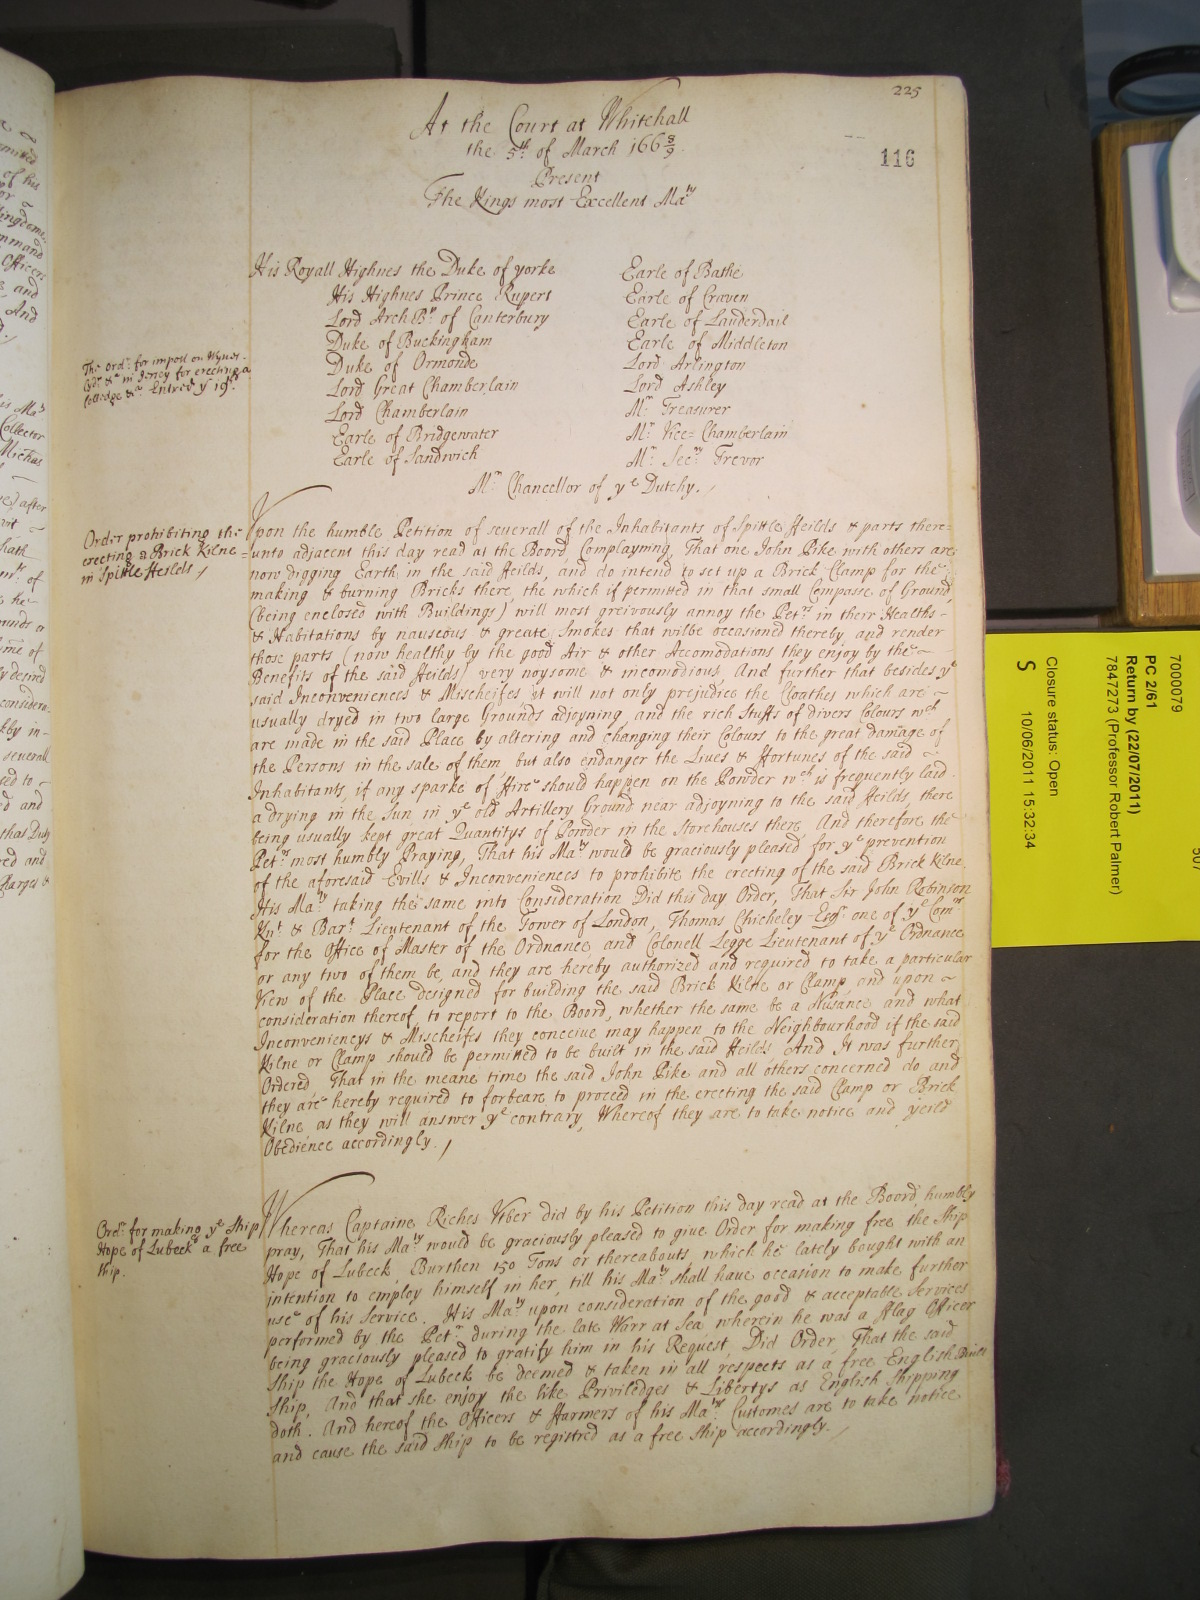 225
116
At the Court at Whitehall
the 5th of March 1668/9
Present
The Kings most Excellent Maty
His Royall Highnes the Duke of yorke
His Highnes Prince Rupert
Lord Arch-Bp of Canterbury
Duke of Buckingham
Duke of Ormonde
Lord Great Chamberlain
Lord Chamberlain
Earle of Bridgewater
Earle of Sandwich
Earle of Bathe
Earle of Craven
Earle of Lauderdail
Earle of Middleton
Lord Arlington
Lord Ashley
Mr Treasurer
Mr Vice=Chamberlain
Mr Secry Trevor
Mr Chancellor of ye Dutchy.
The Ordr for impost on Wynes
&c in Jersey for erecting a
Colledge &c Entred ye 19th
Order prohibiting the
erecting a Brick Kilne
in Spittle Feilds
Upon the humble Petition of severall of the Inhabitants of Spittle Feilds & parts there=
unto adjacent this day read at the Board, Complayning, That one John Pike with others are
now digging Earth in the said Feilds, and do intend to set up a Brick Clamp for the
making & burning Bricks there, the which if permitted in that small Compasse of Ground
(being enclosed with Buildings) will most greivously annoy the Petrs in their Healths
& Habitations by nauseous & greate Smokes that wilbe occasioned thereby, and render
those parts (now healthy by the good Air & other Accomodations they enjoy by the
Benefits of the said Feilds) very noysome & incomodious, And further that besides ye
said Inconveniences & Mischeifes it will not only prejudice the Cloathes which are
usually dryed in two large Grounds adjoyning, and the rich Stuffs of divers Colours wch
are made in the said Place by altering and changing their Colours to the great damage of
the Persons in the sale of them, but also endanger the Lives & Fortunes of the said
Inhabitants, if any sparke of Fire should happen on the Powder wch is frequently laid
a drying in the Sun in ye old Artillery Ground near adjoyning to the said Feilds, there
being usually kept great Quantitys of Powder in the Storehouses there, And therefore the
Petrs most humbly Praying, That his Maty would be graciously pleased for ye prevention
of the aforesaid Evills & Inconveniences to prohibite the erecting of the said Brick Kilne
His Maty taking the same into Consideration Did this day Order, That Sir John Robinson
Knt & Bart Lieutenant of the Tower of London, Thomas Chicheley Esqr one of ye Comrs
for the Office of Master of the Ordnance and Colonell Legge Lieutenant of ye Ordnance
or any two of them be, and they are hereby authorized and required to take a particular
View of the Place designed for building the said Brick Kilne or Clamp, and upon
consideration thereof, to report to the Board, whether the same be a Nusance, and what
Inconveniencys & Mischeifes they conceive may happen to the Neighbourhood if the said
Kilne or Clamp should be permitted to be built in the said Feilds, And It was further
Ordered, That in the meane time the said John Pike and all others concerned do and
they are hereby required to forbeare to proceed in the erecting the said Clamp or Brick
Kilne as they will answer ye contrary, Whereof they are to take notice and yeild
Obedience accordingly.
Ordr for making ye Ship
Hope of Lubeck a free
Ship.
Whereas Captaine Riches Utber did by his Petition this day read at the Board humbly
pray, That his Maty would be graciously pleased to give Order for making free the Ship
Hope of Lubeck, Burthen 150 Tons or thereabouts, which he lately bought with an
intention to employ himself in her, till his Maty shall have occasion to make further
use of his Service. His Maty upon consideration of the good & acceptable Services
performed by the Petr during the late Warr at Sea wherein he was a Flag Officer
being graciously pleased to gratify him in his Request, Did Order, That the said
Ship the Hope of Lubeck be deemed & taken in all respects as a free English Built
Ship, And that she enjoy the like Priviledges & Libertys as English Shipping
doth. And hereof the Officers & Farmers of his Mats Customes are to take notice
and cause the said Ship to be registred as a free Ship accordingly.
7000079
PC 2/61
Return by (22/07/2011)
7847273 (Professor Robert Palmer)
Closure status: Open
S 10/06/2011 15:32:34